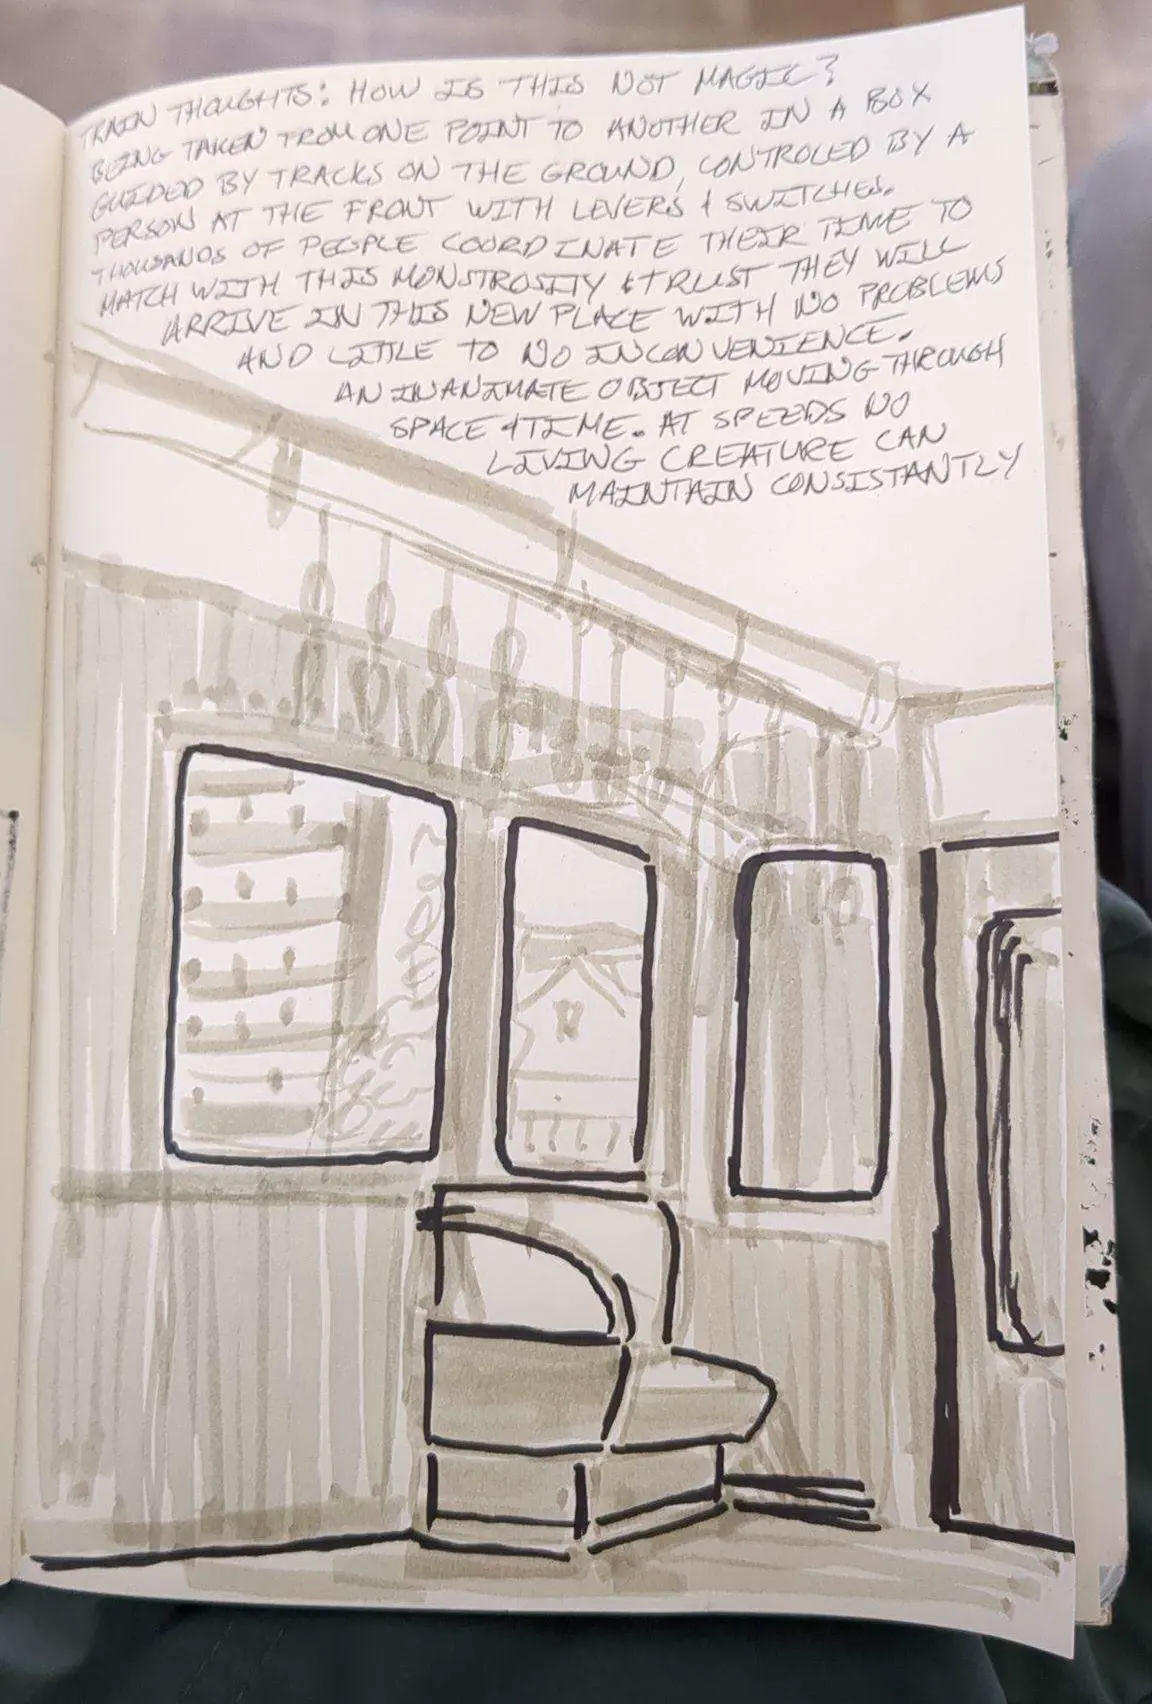 TRAIN THOUGHTS: HOW IS THIS NOT MAGIC?
BEING TAKEN FROM ONE POINT TO ANOTHER IN A BOX
GUIDED BY TRACKS ON THE GROUND, CONTROLED BY A
PERSON AT THE FRONT WITH LEVERS & SWITCHES.
THOUSANDS OF PEOPLE COORDINATE THEIR TIME TO
MATCH WITH THIS MONSTROSITY & TRUST THEY WILL
ARRIVE IN THIS NEW PLACE WITH NO PROBLEMS
AND LITTLE TO NO INCONVENIENCE.
AN INANIMATE OBJECT MOVING THROUGH
SPACE & TIME. AT SPEEDS NO
LIVING CREATURE CAN
MAINTAIN CONSISTANTLY